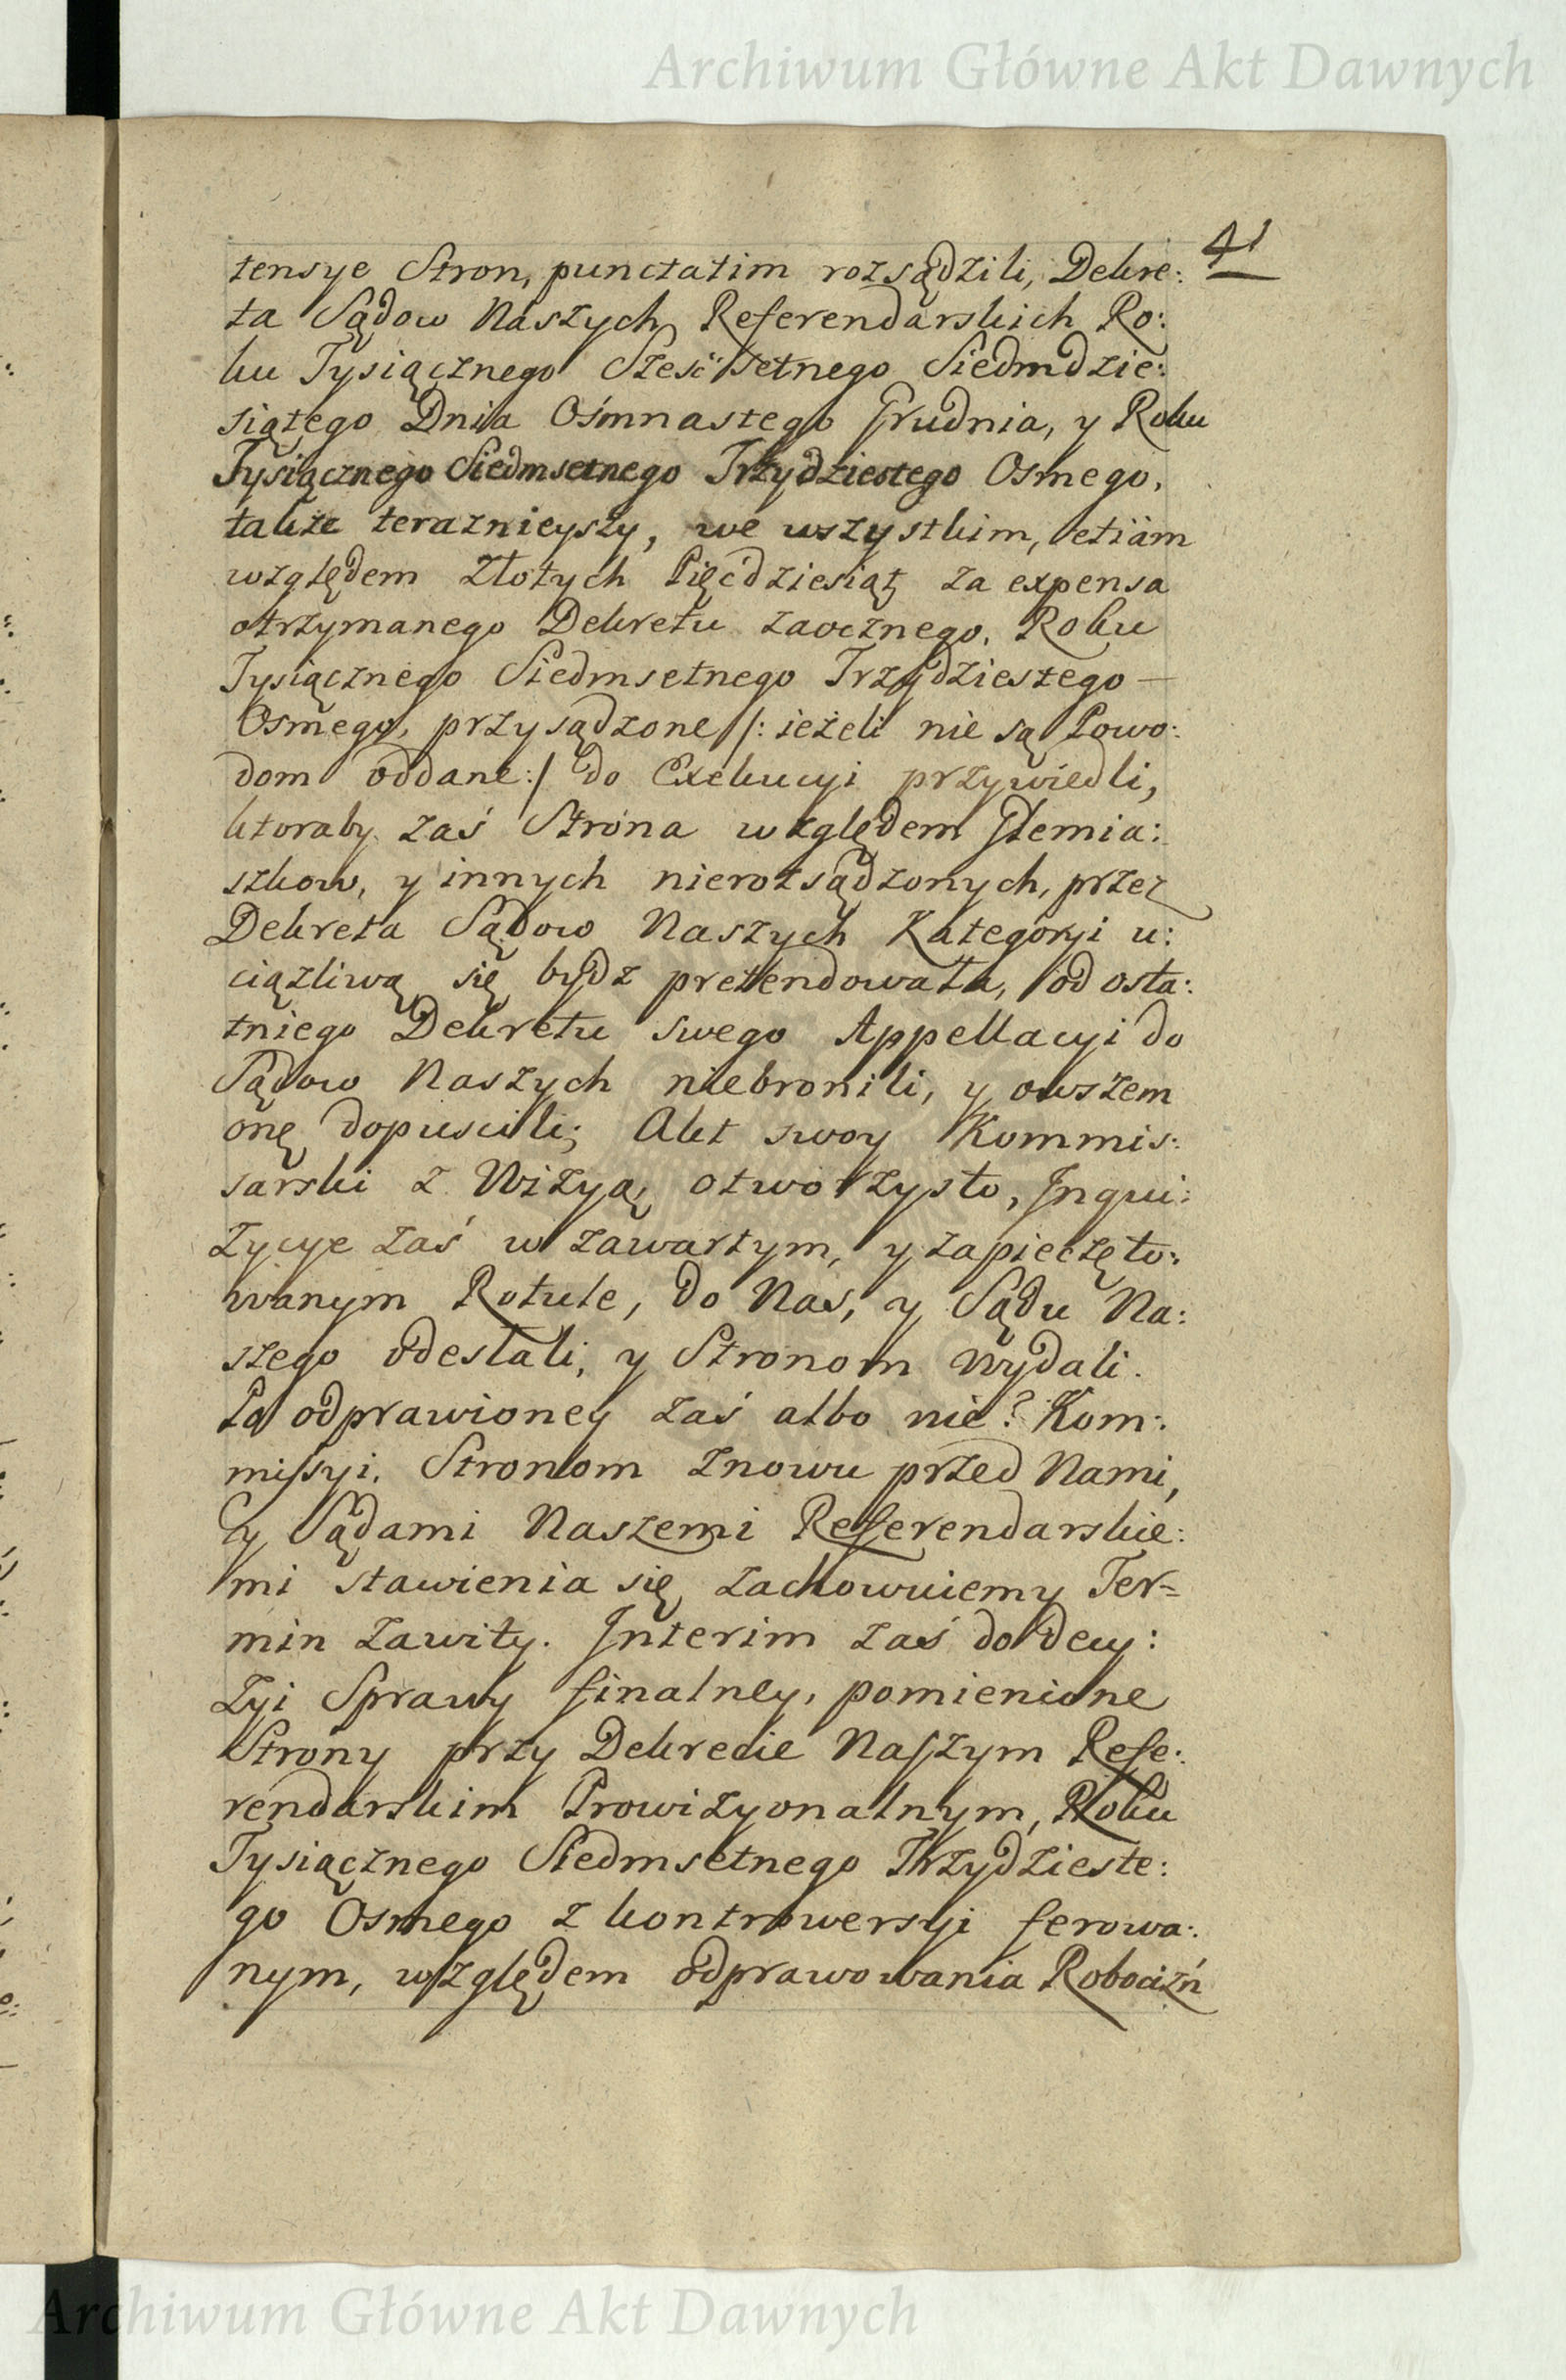 Archiwum Główne Akt Dawnych
41
tensye Stron, punctatim rozsądzili, Dekre:
ta Sądow Naszych Referendarskich Ro:
ku Tysiącznego Sześćsetnego Siedmdzie:
siątego Dnia Osmnastego Grudnia, y Roku
Tysiącznego Siedmsetnego Trzydziestego Osmego,
także teraznieyszy, we wszystkim, etiam
względem Złotych Pięcdziesiąt za expensa
otrzymanego Dekretu zaocznego, Roku
Tysiącznego Siedmsetnego Trzydziestego —
Osmego, przysądzone /: ieżeli nie są Powo:
dom oddane :/ do Exekucyi przywiedli,
ktoraby zaś Strona względem Giemia:
szkow, y innych nierozsądzonych, przez
Dekreta Sądow Naszych Kategoryi u:
ciązliwą się bydz pretendowała, od osta:
tniego Dekretu swego Appellacyi do
Sądow Naszych niebronili, y owszem
onę dopuscili; Akt swoy Kommis:
sarski z Wizyą, otworzysto, Inqui:
zycye zaś w zawartym, y zapieczęto:
wanym Rotule, do Nas, y Sądu Na:
szego odeslali, y Stronom wydali.
Po odprawioney zaś albo nie? Kom:
missyi, Stronom znowu przed Nami,
y Sądami Naszemi Referendarskie:
mi stawienia się zachowuiemy Ter=
min zawity. Interim zaś do decy:
zyi Sprawy finalney, pomienione
Strony przy Dekrecie Naszym Refe:
rendarskim Prowizyonalnym, Roku
Tysiącznego Siedmsetnego Trzydzieste:
go Osmego z kontrowersyi ferowa:
nym, względem odprawowania Robocizń
Archiwum Główne Akt Dawnych